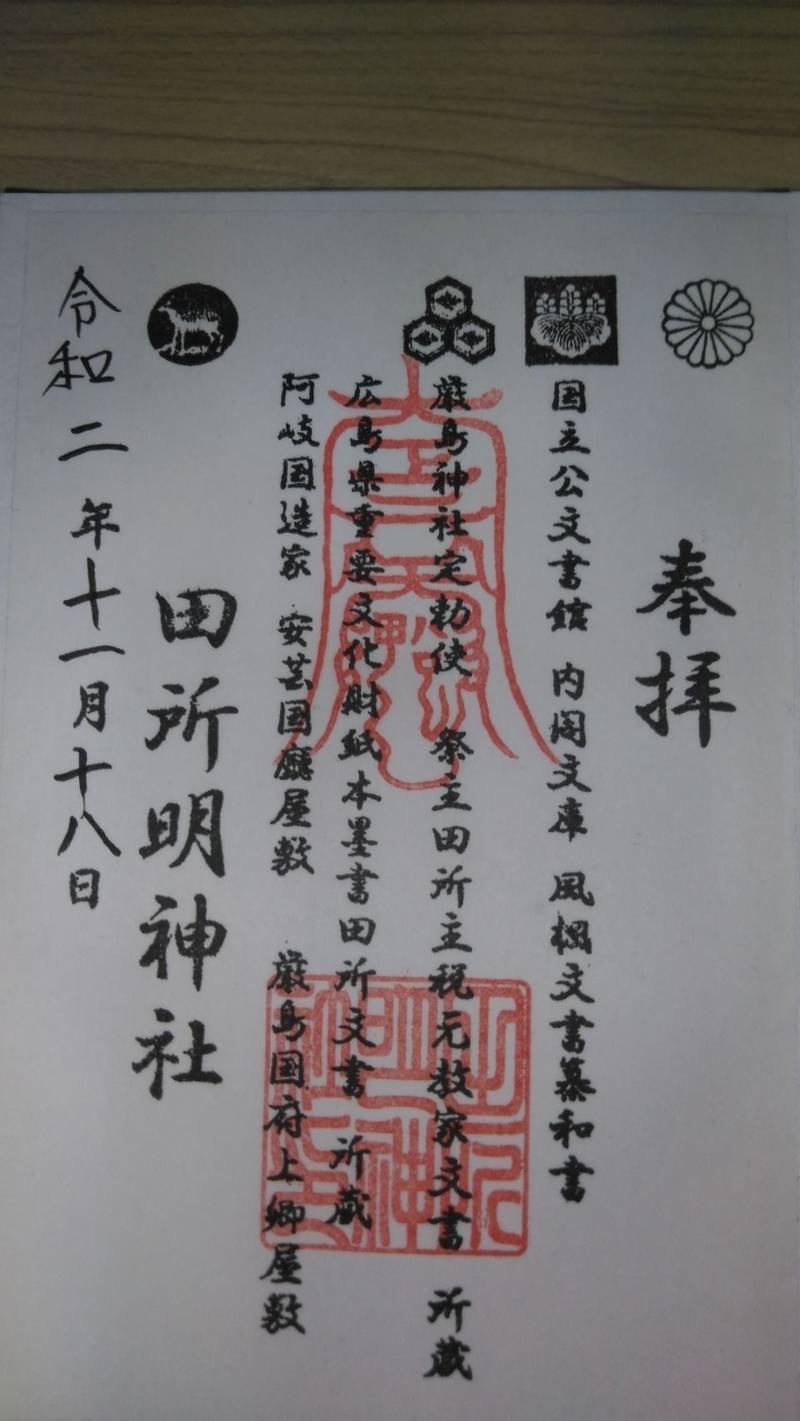 奉拝
国立公文書館 内閣文庫 風楓文書纂和書
厳島神社定勅使 祭主田所主税元教家文書 所蔵
広島県重要文化財紙本墨書田所文書 所蔵
阿岐国造家 安芸国廳屋敷 厳島国府上卿屋敷
田所明神社
令和二年十一月十八日